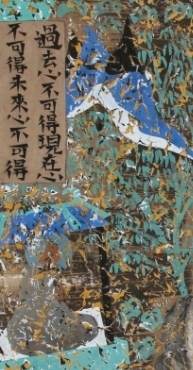 過去心不可得現在心
不可得未來心不可得